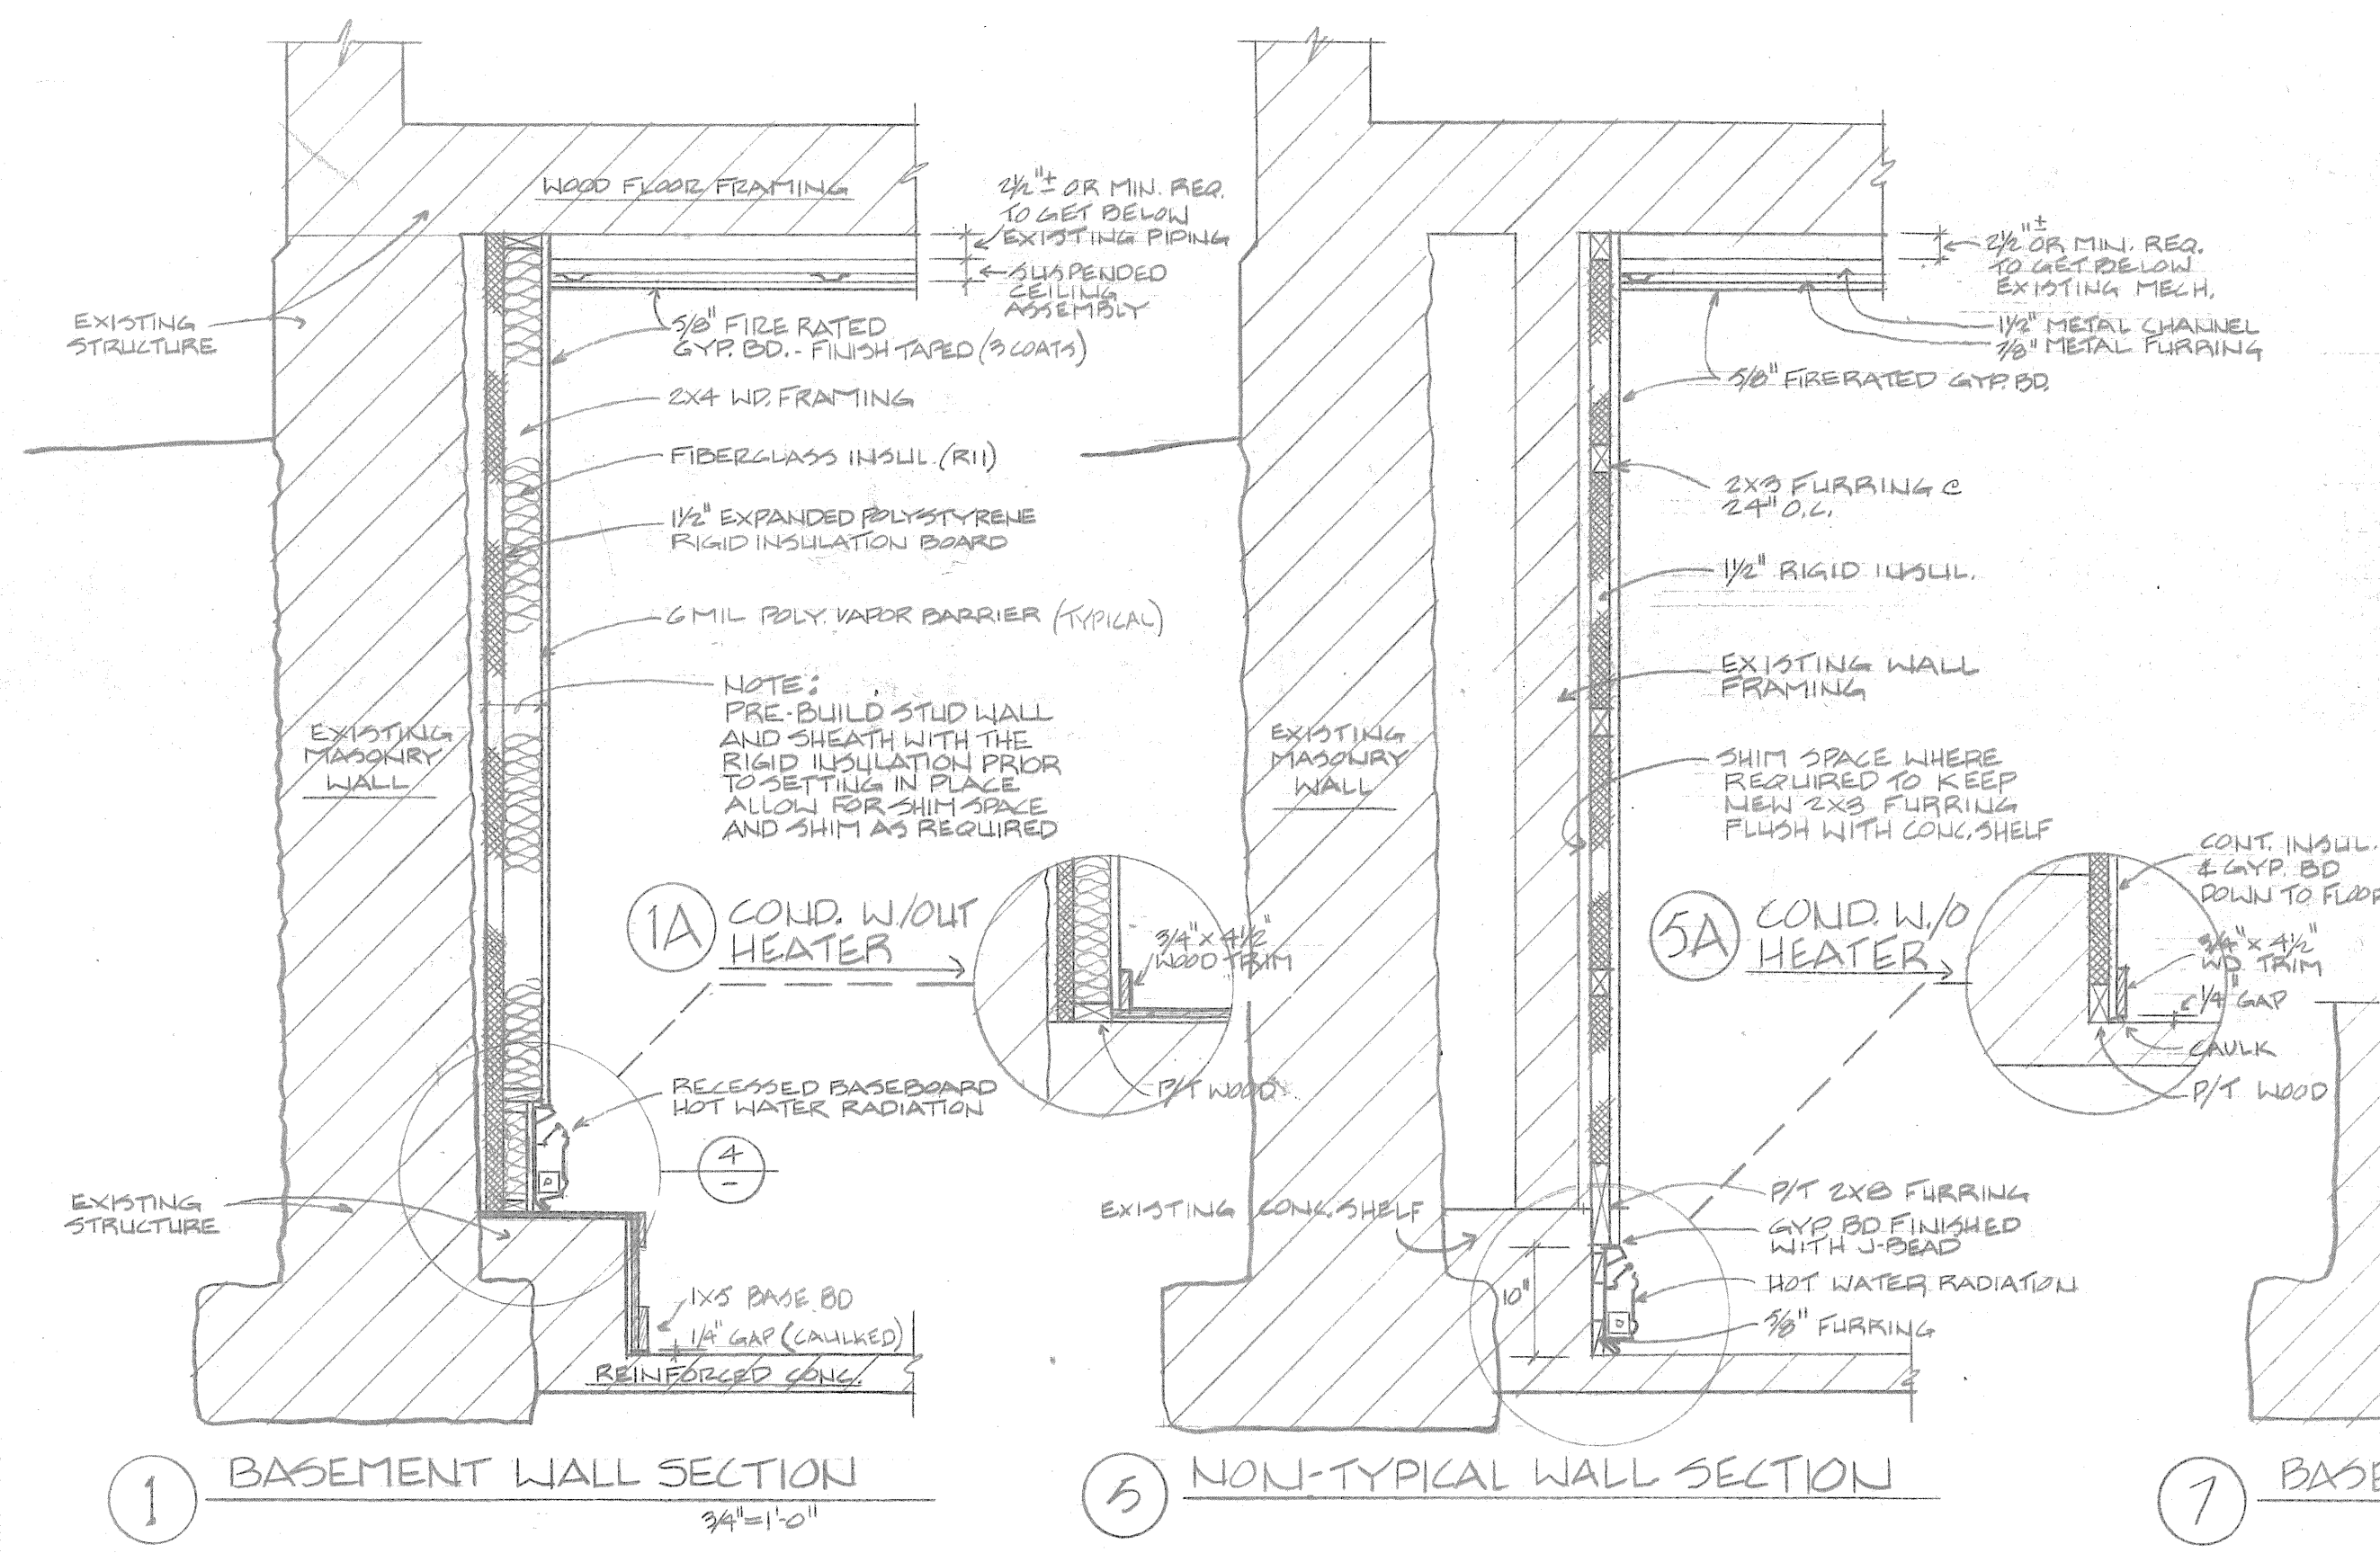 WOOD FLOOR FRAMING
2½"± OR MIN. REQ.
TO GET BELOW
EXISTING PIPING
SUSPENDED
CEILING
ASSEMBLY
EXISTING
STRUCTURE
5/8" FIRE RATED
GYP. BD. - FINISH TAPED (3 COATS)
2X4 WD. FRAMING
FIBERGLASS INSUL. (R11)
1½" EXPANDED POLYSTYRENE
RIGID INSULATION BOARD
6 MIL POLY. VAPOR BARRIER (TYPICAL)
NOTE:
PRE-BUILD STUD WALL
AND SHEATH WITH THE
RIGID INSULATION PRIOR
TO SETTING IN PLACE
ALLOW FOR SHIM SPACE
AND SHIM AS REQUIRED
EXISTING
MASONRY
WALL
1A
COND. W./OUT
HEATER
3/4" X 4½"
WOOD TRIM
P/T WOOD
RECESSED BASEBOARD
HOT WATER RADIATION
4
-
P
EXISTING
STRUCTURE
1X5 BASE BD
1/4" GAP (CAULKED)
REINFORCED CONC.
1
BASEMENT WALL SECTION
3/4"=1'-0"
2½"± OR MIN. REQ.
TO GET BELOW
EXISTING MECH.
1½" METAL CHANNEL
7/8" METAL FURRING
5/8" FIRERATED GYP. BD.
2X3 FURRING @
24" O.C.
1½" RIGID INSUL.
EXISTING WALL
FRAMING
EXISTING
MASONRY
WALL
SHIM SPACE WHERE
REQUIRED TO KEEP
NEW 2X3 FURRING
FLUSH WITH CONC. SHELF
5A
COND. W./O
HEATER
CONT. INSUL.
& GYP. BD
DOWN TO FLOOR
3/4" X 4½"
WD. TRIM
1/4" GAP
CAULK
P/T WOOD
EXISTING CONC. SHELF
P/T 2X8 FURRING
GYP. BD FINISHED
WITH J-BEAD
HOT WATER RADIATION
10"
5/8" FURRING
5
NON-TYPICAL WALL SECTION
7
BASE